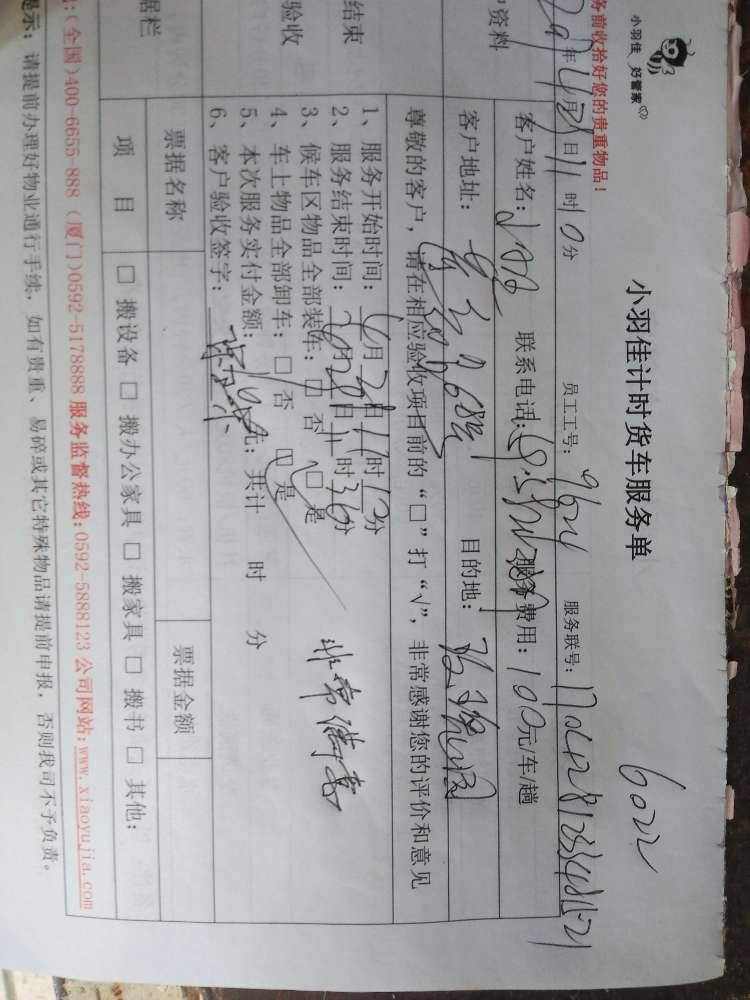 小羽佳 好管家
务前收拾好您的贵重物品！
小羽佳计时货车服务单
6022
年4月28日11时10分 员工工号：9624 服务联号：
户资料
客户姓名： 联系电话： 服务费用：100元/车/趟
客户地址： 目的地：
尊敬的客户，请在相应验收项目前的“□”打“√”，非常感谢您的评价和意见
结束
验收
1、服务开始时间： 月28日11时13分
2、服务结束时间： 月28日11时36分
3、候车区物品全部装车：□否 □是
4、车上物品全部卸车：□否 □是
5、本次服务实付金额： 元；共计 时 分
6、客户验收签字：
非常满意
据栏
票据名称 票据金额
项 目 □搬设备 □搬办公家具 □搬家具 □搬书 □其他：
：(全国)400-6655-888 (厦门)0592-5178888 服务监督热线：0592-5888123 公司网站：www.xiaoyujia.com
提示：请提前办理好物业通行手续，如有贵重、易碎或其它特殊物品请提前申报，否则我司不予负责。